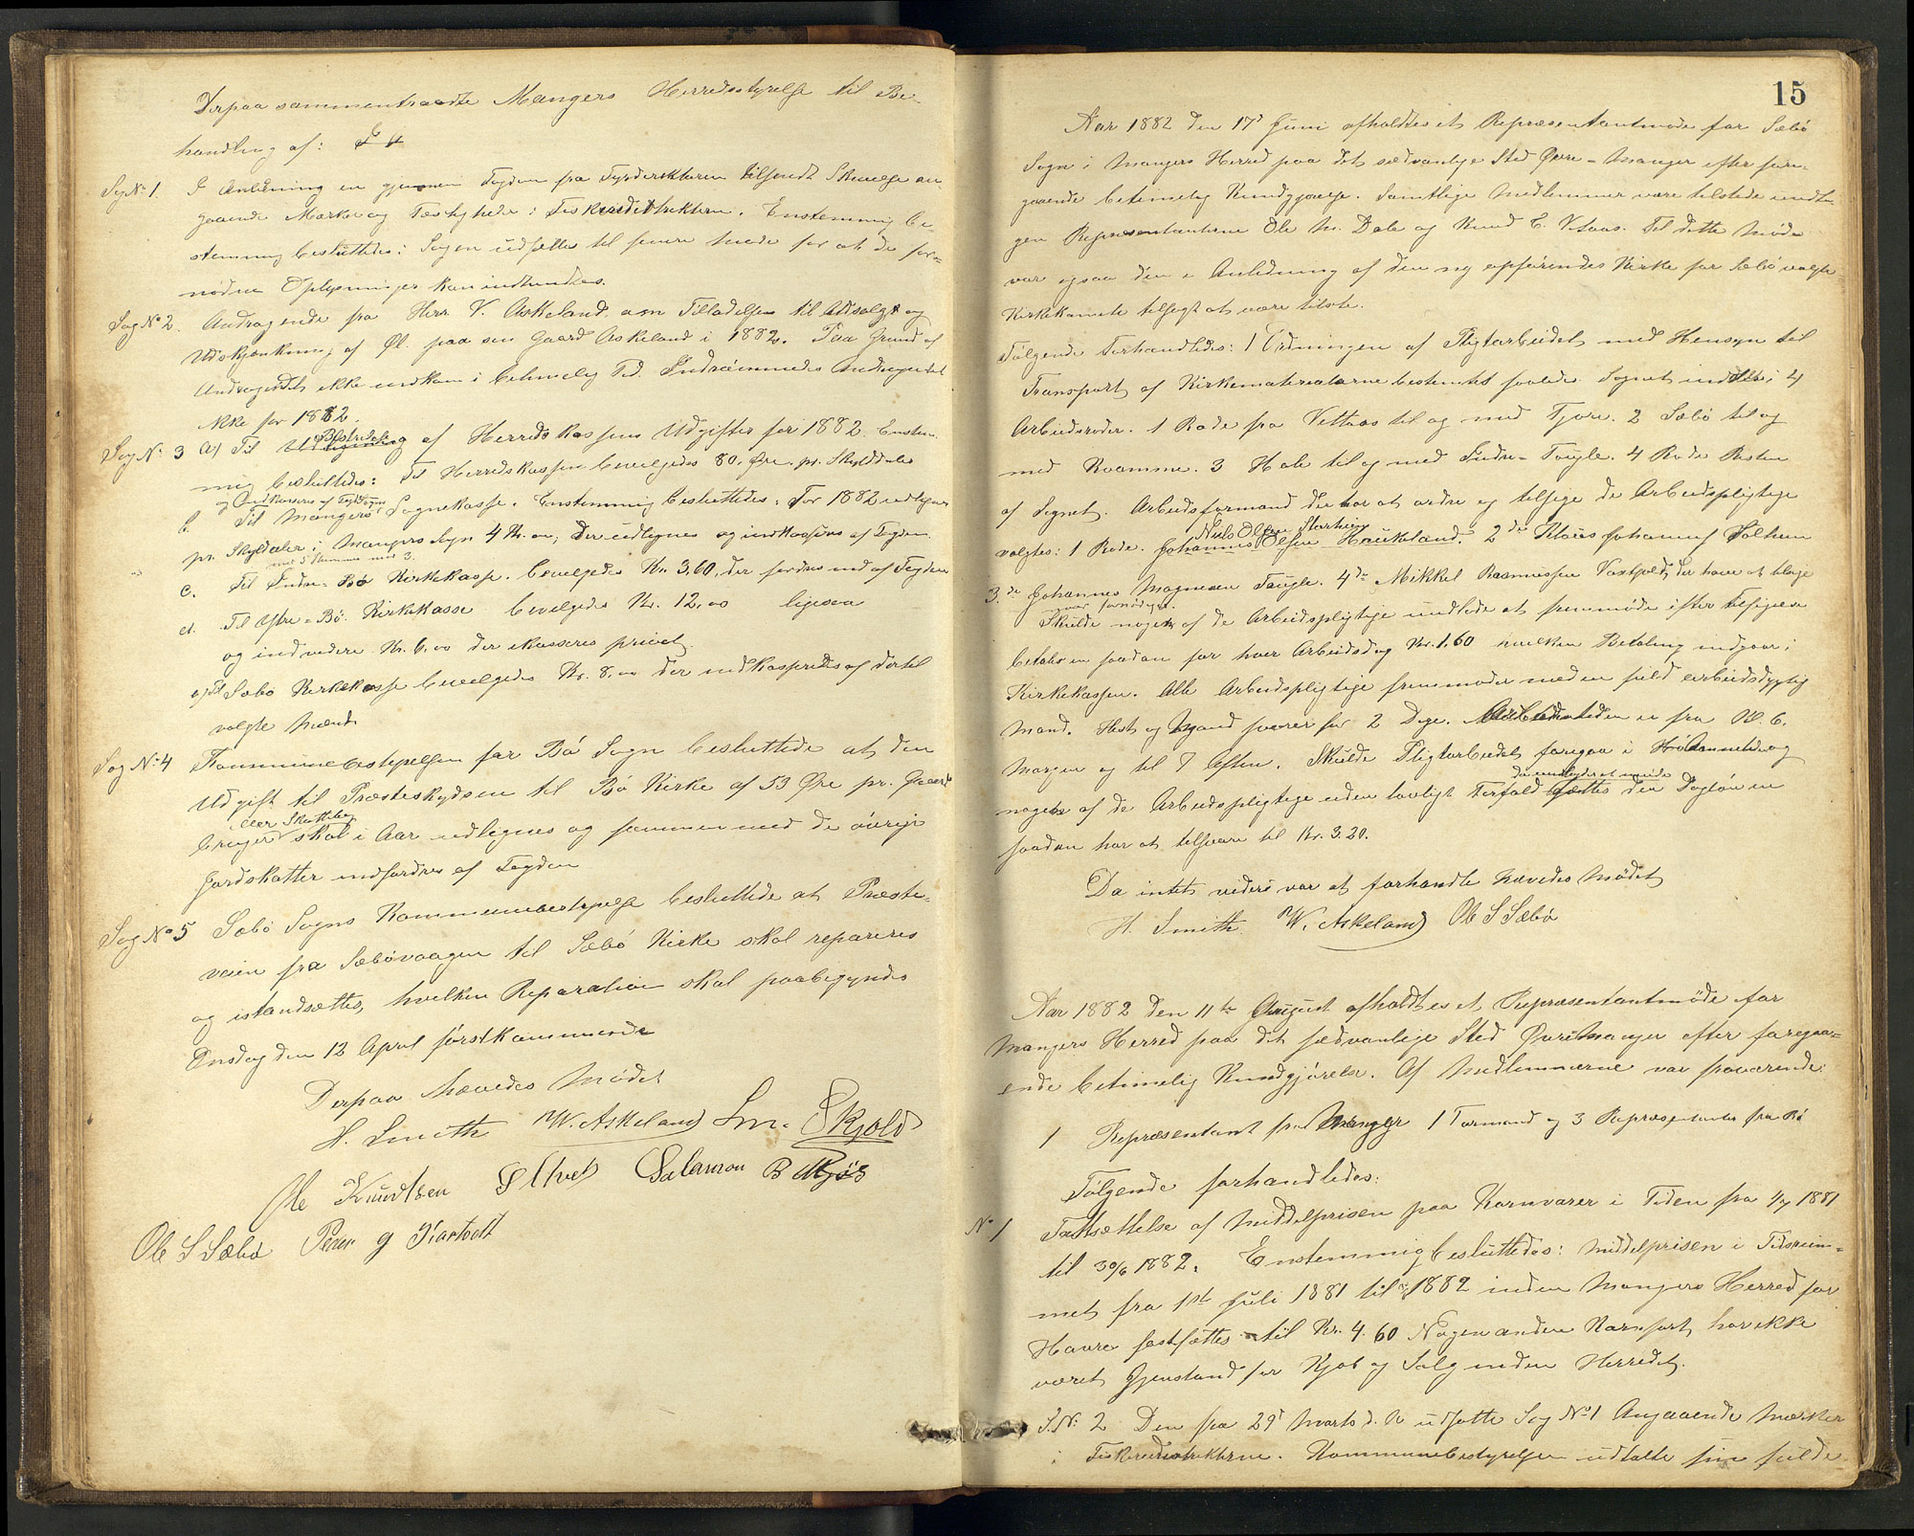 Derpaa sammentraadte Mangers Herredsstyrelse til Be-
handling af:
Sag No 1. I Anledning en gjennem Fogden fra Fyrdirektøren tilsendt Skrivelse an-
gaaende Mærker og Fæstigheder i Fiskeridistrikterne. Enstemmig be-
stemmig besluttedes: Sagen udsættes til senere Møde for at de for-
nødne Oplysninger kan indhentes.
Sag No 2. Andragende fra Herr V. Askeland om Tilladelse til Udsalg og
Udskjænkning af Øl paa sin Gaard Askeland i 1882. Paa Grund af
Andragendet ikke indkom i betimelig Tid indrømmedes Andragendet
ikke for 1882
Sag No 3 a) Til Bestridelse af Herredskassens Udgifter for 1882. Enstem-
mig besluttedes: Til Herredskassen bevilgedes 80 Øre pr. Skylddaler
og indkasseres af Fogden
b. Til Mangers Sognekasse. Enstemmig besluttedes: For 1882 udlignes
pr. Skyldaler i Mangers Sogn 4 Kr. 00, der udlignes og indkasseres af Fogden
c. Til Indre-Bø Kirkekasse bevilgedes Kr. 3,60, der fordres ind af Fogden
d. Til Ytre-Bø Kirkekasse bevilgedes Kr. 12,00 ligesaa
og indvidere Kr. 6,00 der ikasseres privat
e) Til Sæbø Kirkekasse bevilgedes Kr. 8,00 der indkasseredes af dertil
valgte Mænd
Sag No 4 Kommunebestyrelsen for Bø Sogn besluttede at den
Udgift til Præsteskydsen til Bø Kirke af 53 Øre pr. Gaard-
eller Skattebog
bruger skal i Aar udlignes og sammen med de øvrige
Jordskatter indfordres af Fogden
Sag No 5 Sæbø Sogns Kommunebestyrelse besluttede at Præste-
veien fra Sæbøvaagen til Sæbø Kirke skal repareres
og istandsættes, hvilken Reparation skal paabegyndes
Onsdag den 12 April førstkommende
Derpaa hævedes Mødet
H. Smith W. Askeland Sm. Skjold
Ole Knudtsen Salamon B Mjøs
Ole S Sæbø Peder
15
Aar 1882 den 17d Juni afholdtes et Repræsentantmøde for Sæbø
Sogn i Mangers Herred paa det sædvanlige Sted Øvre-Manger efter fore-
gaaende betimelig Kundgjørelse. Samtlige Medlemmer vare tilstede undta-
gen Repræsentanterne Ole M. Dale og Knud E. Vetaas. Til dette Møde
var ogsaa den i Anledning af den ny opførendes Kirke for Sæbø valgte
Kirkekomite tilsagt at være tilste.
Følgende Forhandledes: 1 Ordningen af Pligtarbeidet med Hensyn til
Transport af Kirkematerialerne bestemtes saaledes Sognet inddeles i 4
Arbeidsroder. 1 Rode fra Vettaas til og med Fjore. 2 Sæbø til og
med Kvamme. 3 Hole til og med Indre-Tougle. 4 Rode Resten
af Sognet. Arbeidsformænd der har at ordre og tilsige de Arbeidspligtige
Nils Olsen
valgtes: 1 Rode. Johannes Olsen Haukeland. 2de Johannes Solheim
3.de Johannes Mognesen Tougle. 4de Mikkel Rasmussen der have at
naar fornødiget.
Skulde nogen af de Arbeidspligtige undlade at fremmøde efter Tilsigelse
betaler en saadan for hver Arbeidsdag Kr. 1,60 hvilken Betaling indgaar i
Kirkekassen. Alle Arbeidspligtige fremmøder med en fuld arbeidsdygtig
Mand. Hest og Mand svarer for 2 Dage. Arbeidstiden er fra Kl. 6.
Morgen og til 7 Aften. Skulde Pligtarbeidet foregaa i Høiaannetid og
der undlader at møde
nogen af de Arbeidspligtige uden lovligt Forfald sættes den Dagløn en
saadan har at tilsvare til Kr. 3.20.
Da intet videre var at forhandle hævedes Mødet
H. Smith W. Askeland Ole S Sæbø
Aar 1882 den 11te August afholdtes et Repræsentantmøde for
Mangers Herred paa det sædvanlige Sted Øvre Manger efter foregaa-
ende betimelig Kundgjørelse. Af Medlemmerne var fraværende:
1 Repræsentant fra Manger 1 Formand og 3 Repræsentanter fra Bø
Følgende forhandledes:
No 1 Fastsættelse af Middelprisen paa Kornvarer i Tiden fra 1/7 1881
til 30/6 1882. Enstemmig besluttedes: Middelprisen i Tidsrum-
met fra 1ste Juli 1881 til 1882 inden Mangers Herred for
Havre fastsættes til Kr. 4.60 Nogen anden Kornsort har ikke
været Gjenstand for Kjøb og Salg inden Herredet.
S.N. 2 Den fra 29d Marts d. A udsatte Sag No 1 Angaaende Mærker
i Fiskeridistrikterne. Kommunebestyrelsen udtalte sin fulde